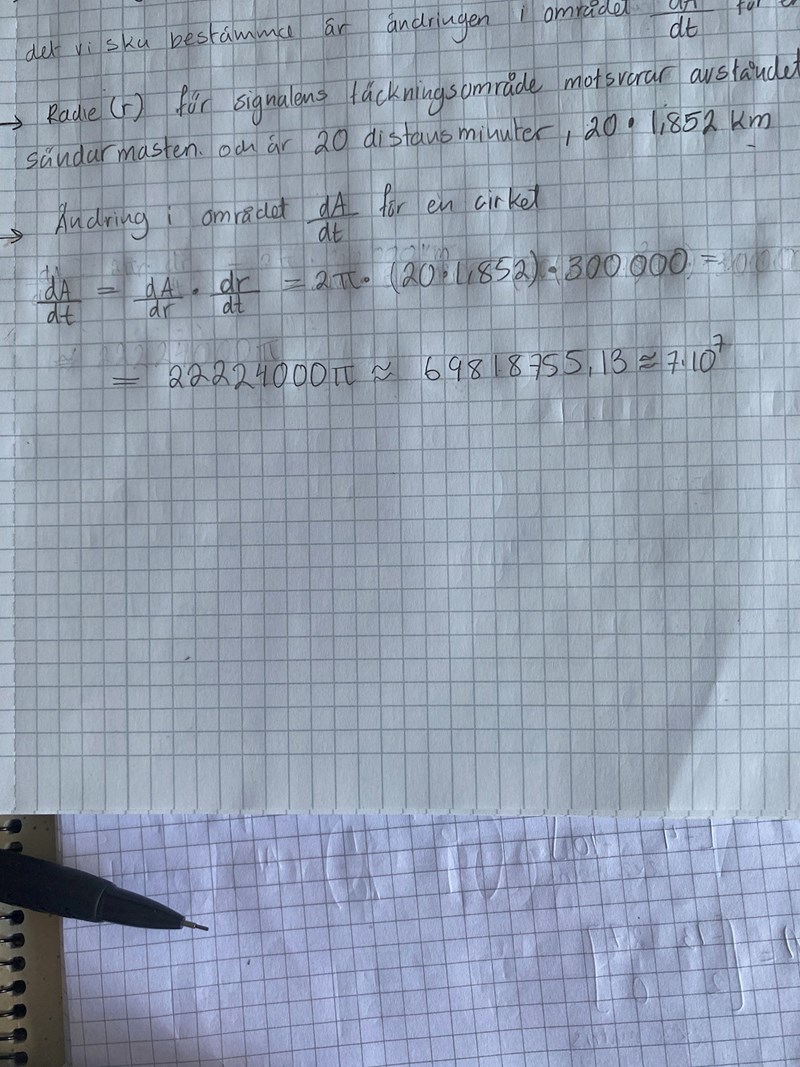 det vi ska bestämma är ändringen i området dA/dt för
→ Radie (r) för signalens täckningsområde motsvarar avståndet
sändarmasten. och är 20 distansminuter, 20 · 1,852 km
→ Ändring i området dA/dt för en cirkel
dA/dt = dA/dr · dr/dt = 2π · (20 · 1,852) · 300 000 =
= 22224000π ≈ 69818755,13 ≈ 7·10⁷